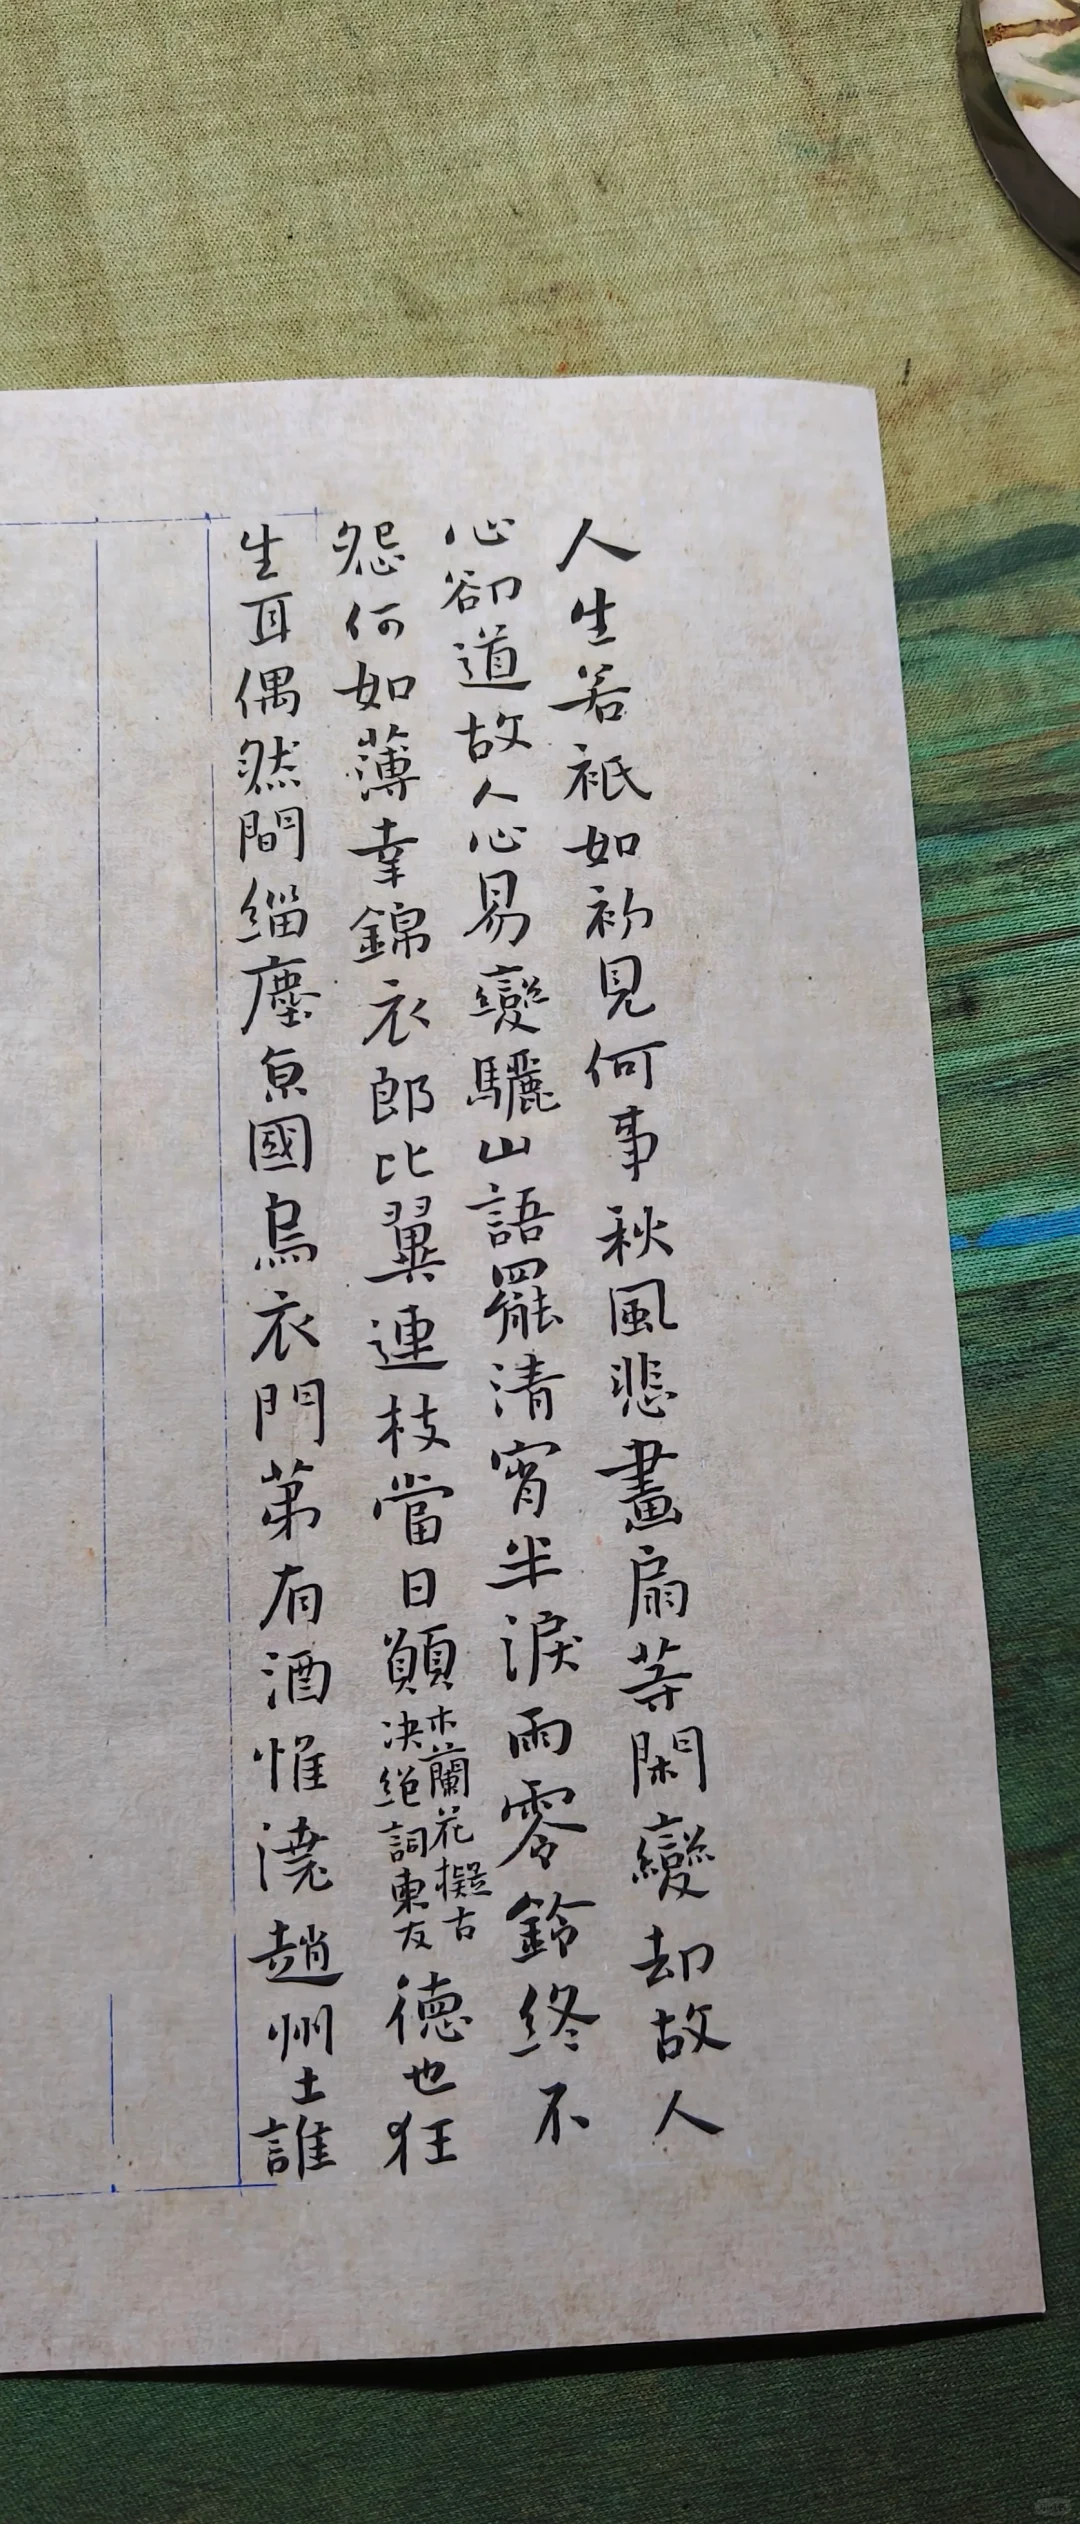 人生若祇如初見何事秋風悲畫扇等閑變却故人
心卻道故人心易變驪山語罷清宵半淚雨零鈴終不
怨何如薄幸錦衣郎比翼連枝當日願
木蘭花擬古
決絕詞柬友
德也狂
生耳偶然間緇塵京國烏衣門第有酒惟澆趙州土誰